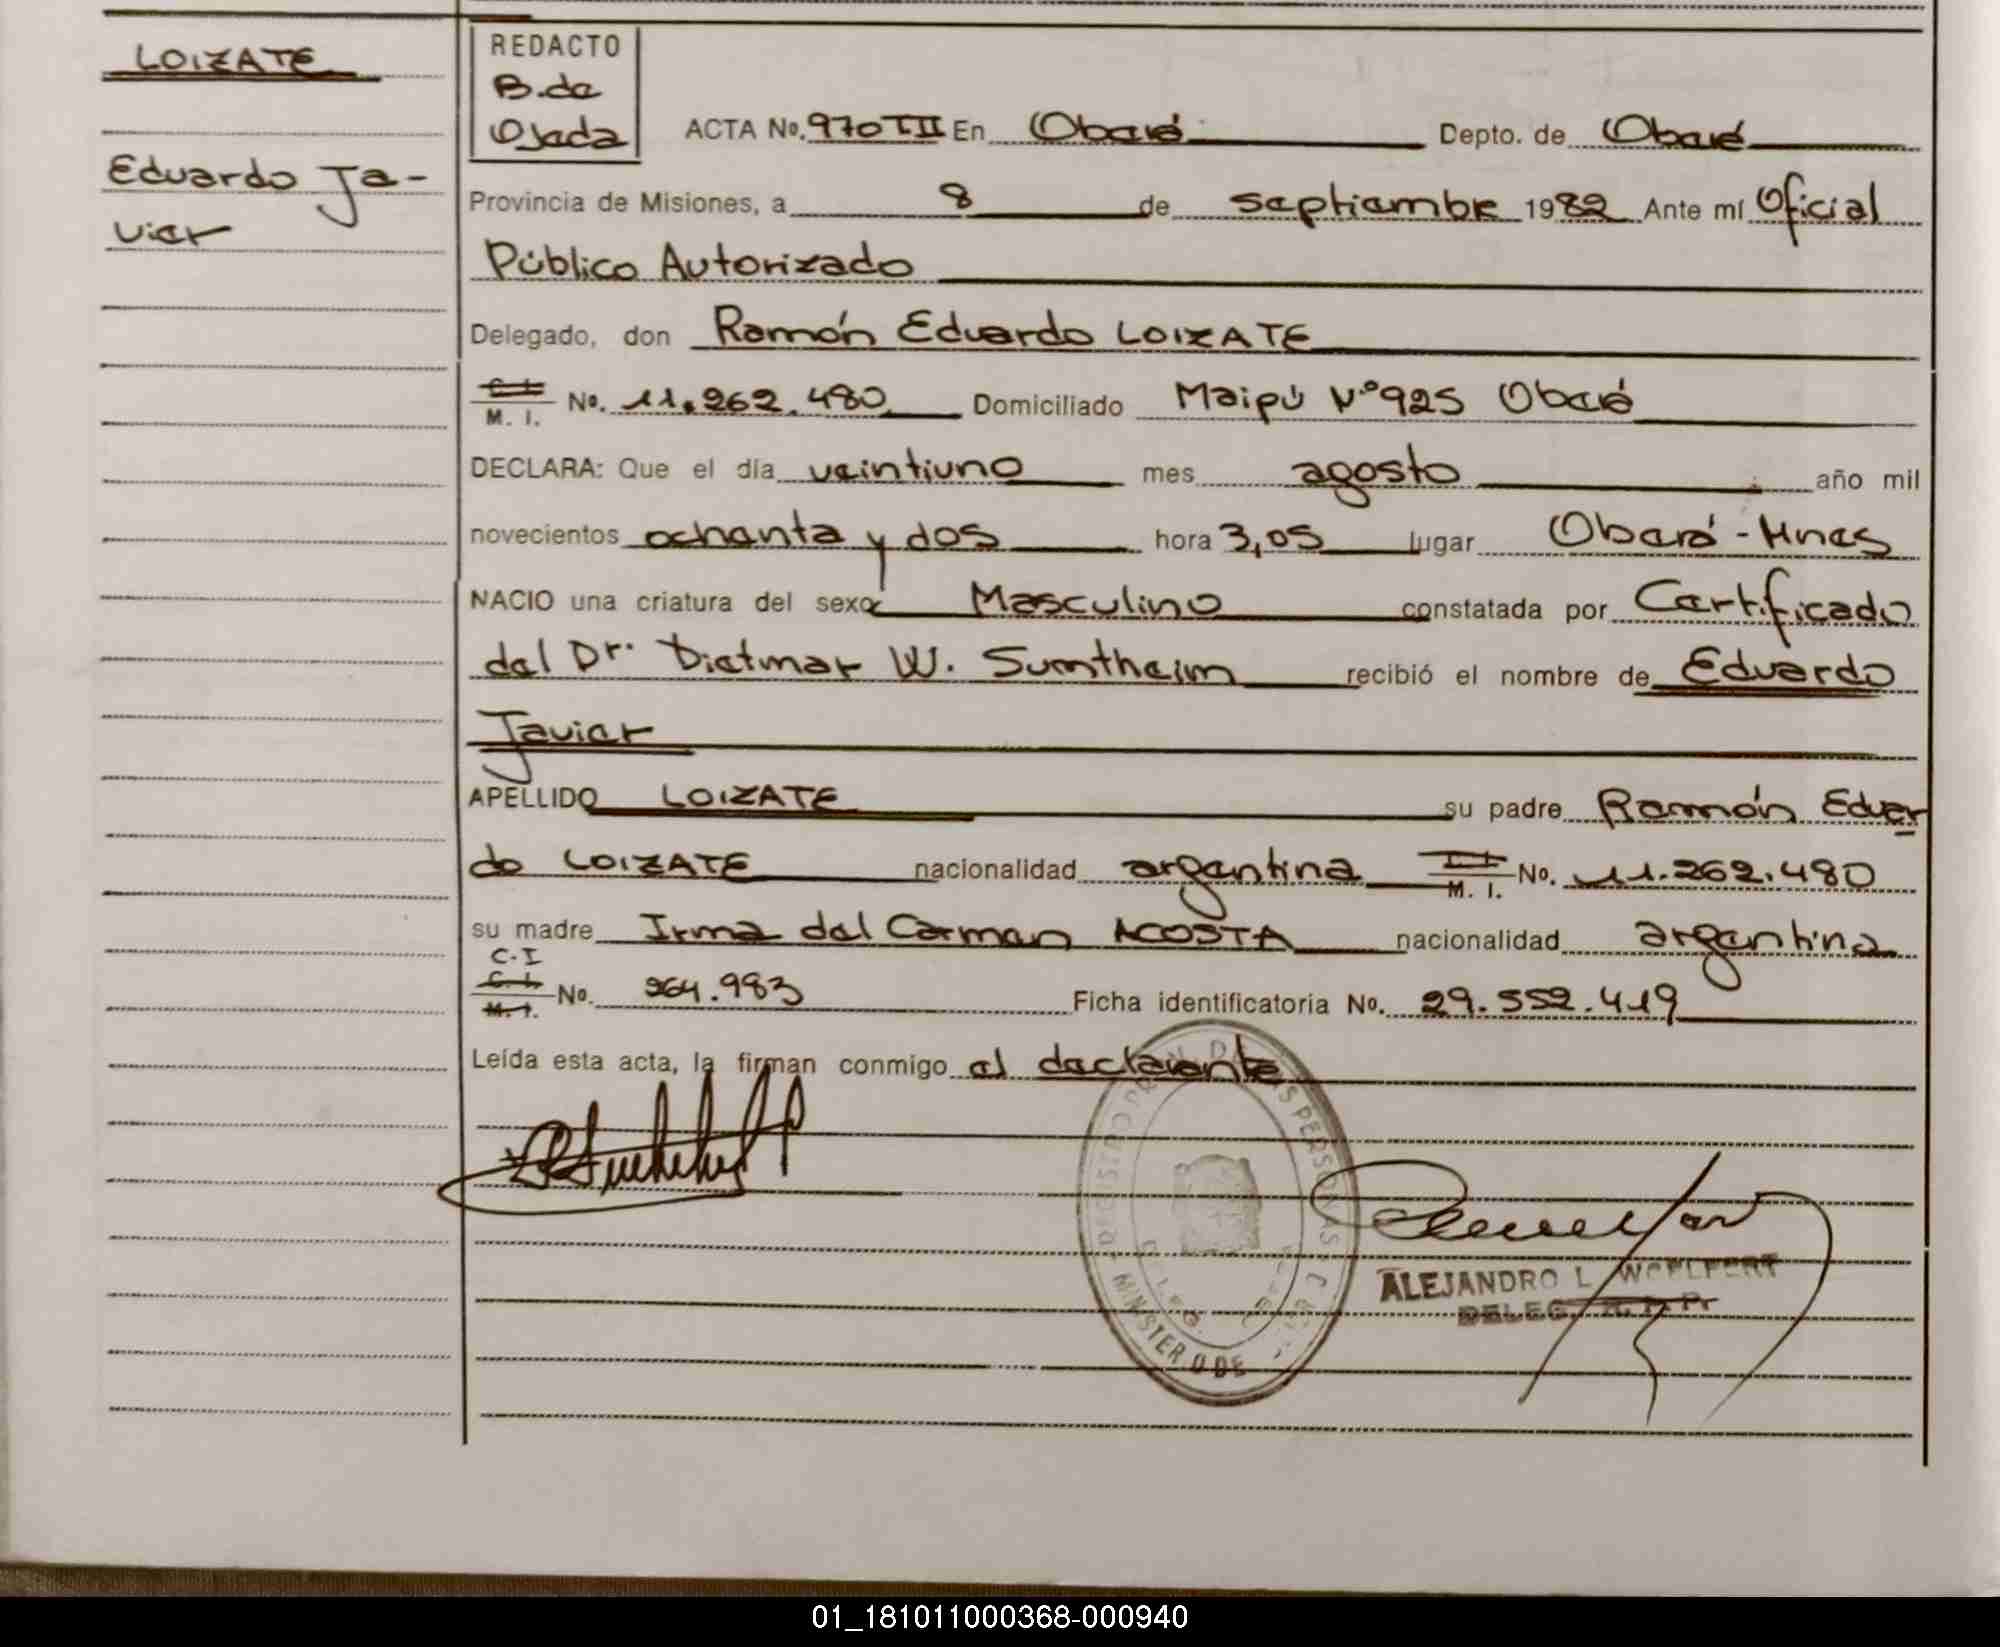 LOIZATE
Eduardo Ja-
vier
REDACTO
B. de
Ojeda
ACTA No. 970 T II En Oberá Depto. de Oberá
Provincia de Misiones, a 8 de septiembre 1982 Ante mí Oficial
Público Autorizado
Delegado, don Ramón Eduardo LOIZATE
C. I.
M. I. No. 11.262.480 Domiciliado Maipú Nº 925 Oberá
DECLARA: Que el día veintiuno mes agosto año mil
novecientos ochenta y dos hora 3,05 lugar Oberá - Mnes
NACIO una criatura del sexo Masculino constatada por Certificado
del Dr. Dietmar W. Sumtheim recibió el nombre de Eduardo
Javier
APELLIDO LOIZATE su padre Ramón Eduar
do LOIZATE nacionalidad argentina M. I. No. 11.262.480
su madre Irma del Carmen ACOSTA nacionalidad argentina
C.I
C. I.
M. I. No. 264.983 Ficha identificatoria No. 29.552.419
Leída esta acta, la firman conmigo el declarante
REGISTRO PERSONAS
MINISTERIO DE
ALEJANDRO L. WOELFERT
DELEG.
01_181011000368-000940